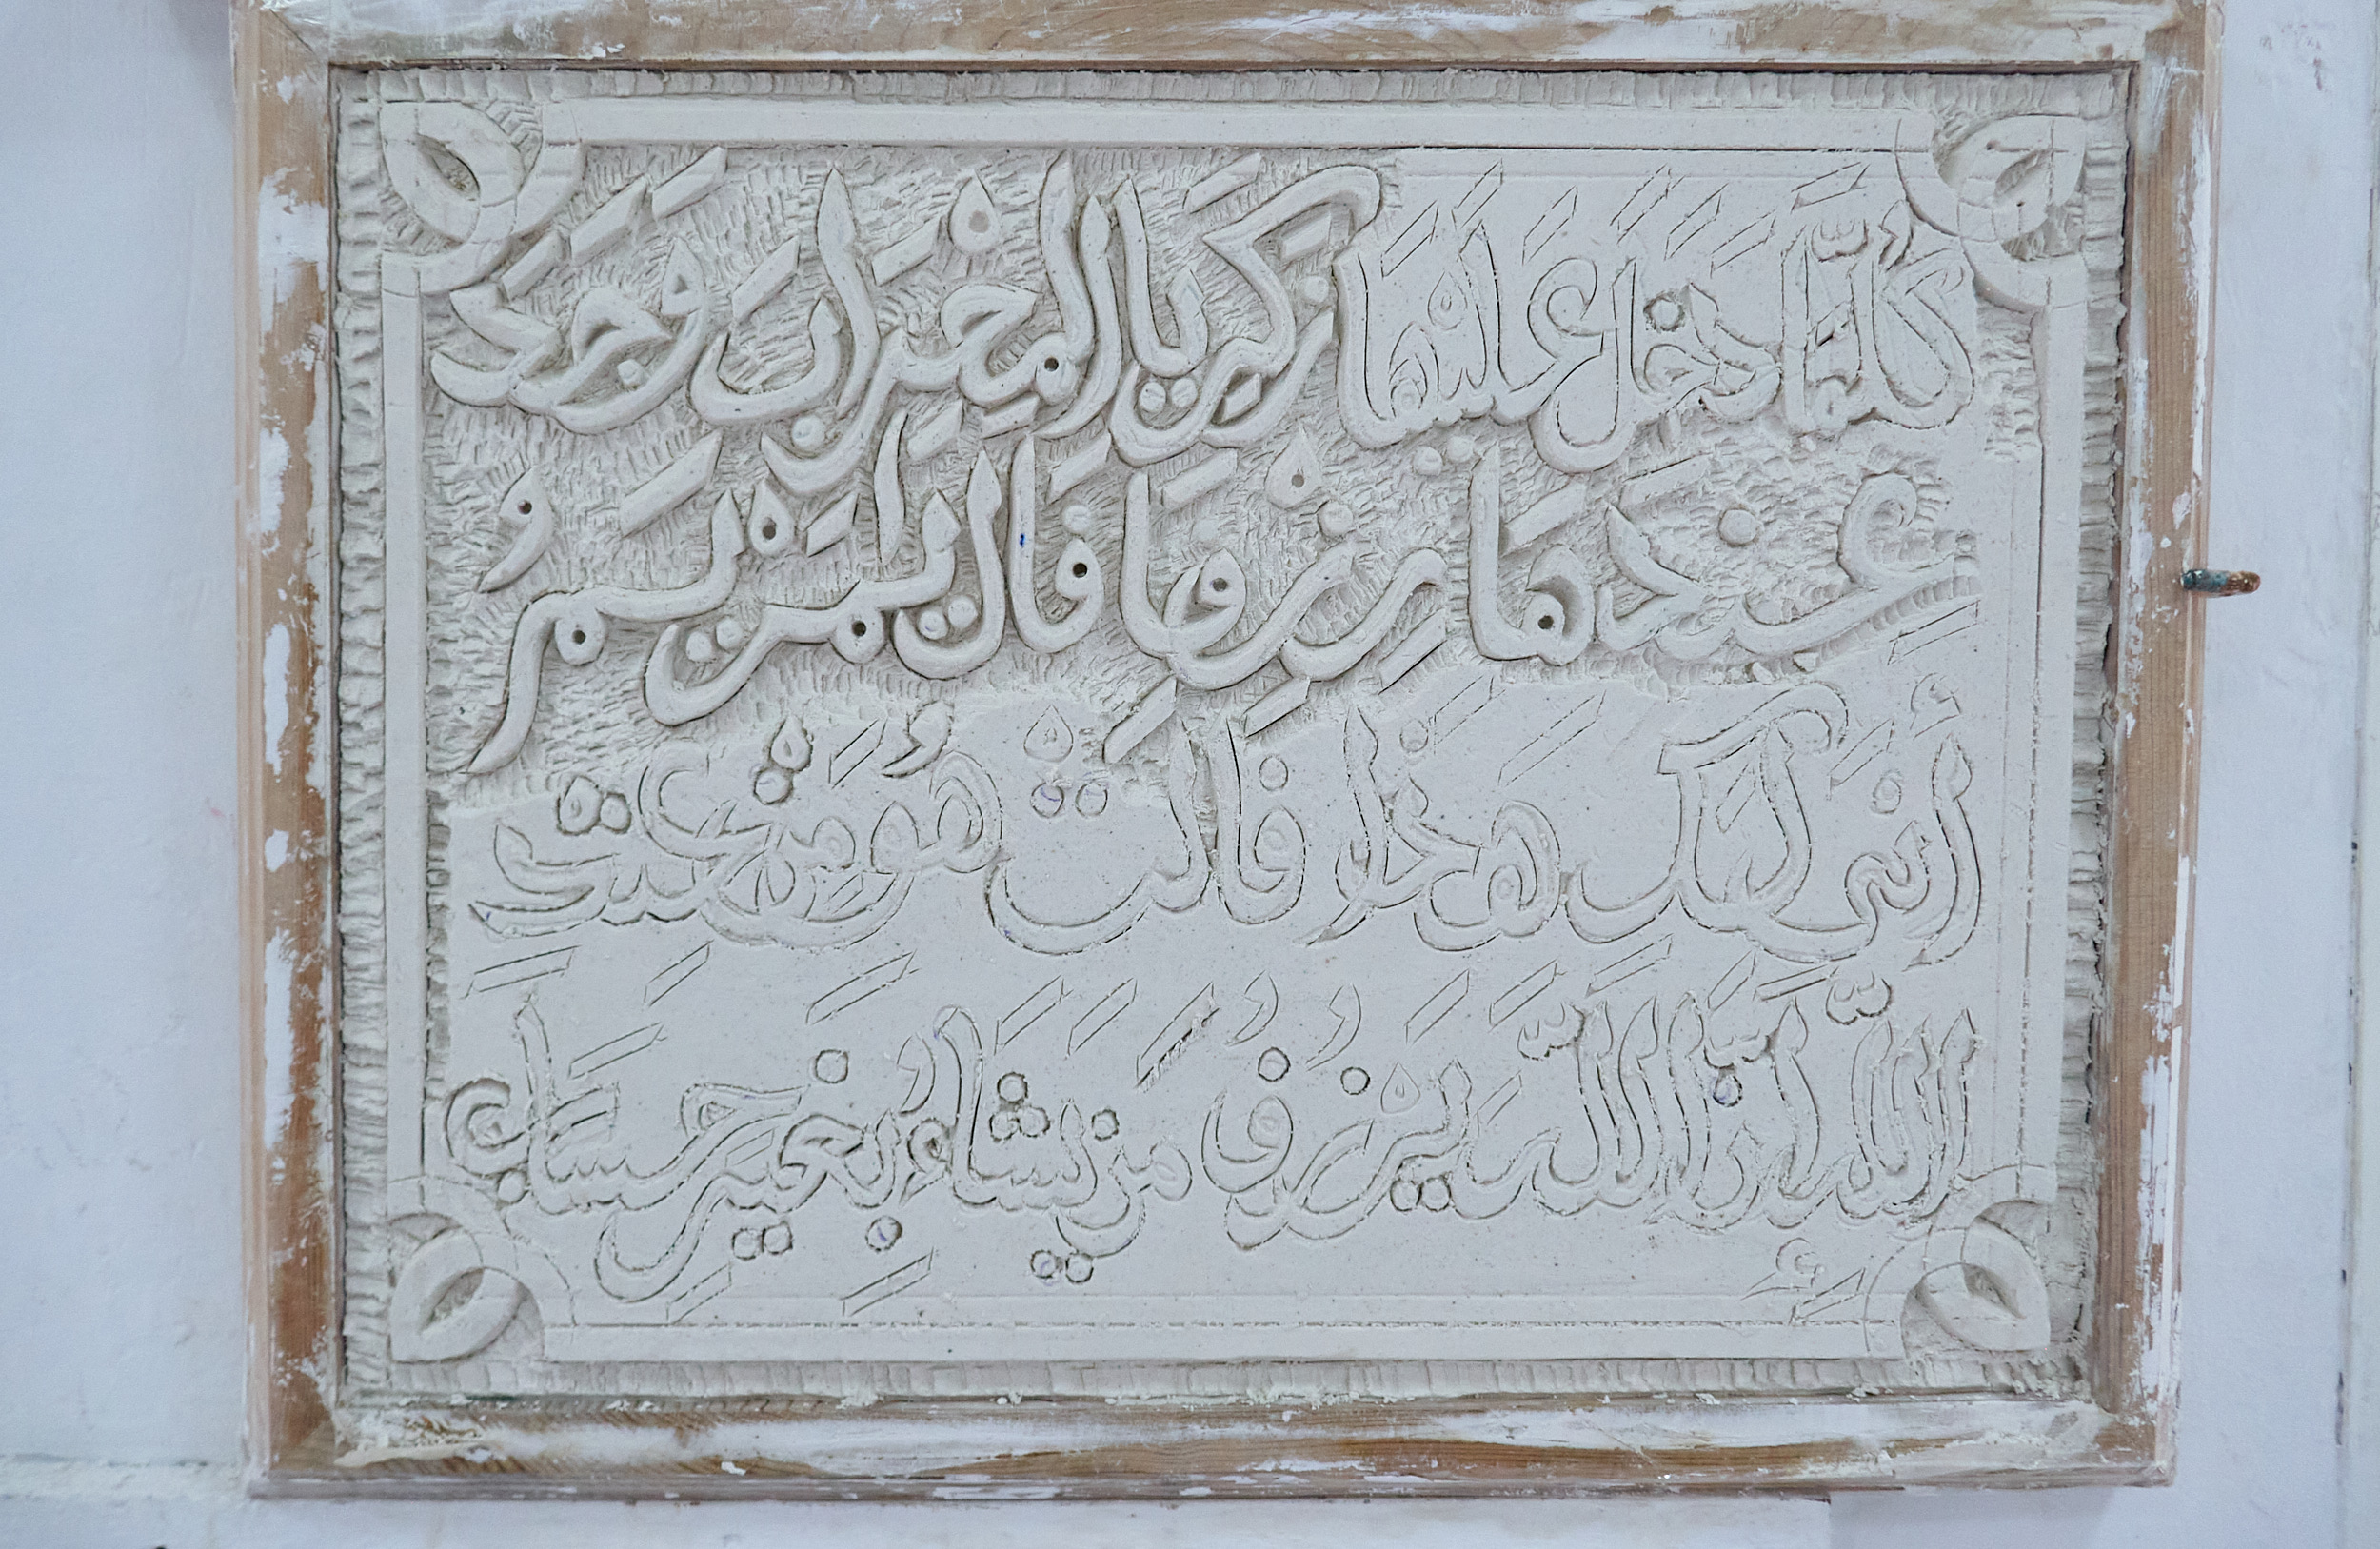 كُلَّمَا دَخَلَ عَلَيْهَا زَكَرِيَّا الْمِحْرَابَ وَجَدَ
عِندَهَا رِزْقًا قَالَ يَمَرْيَمُ
أَنَّى لَكِ هَذَا قَالَتْ هُوَ مِنْ عِندِ
اللَّهِ إِنَّ اللَّهَ يَرْزُقُ مَن يَشَاءُ بِغَيْرِ حِسَابٍ